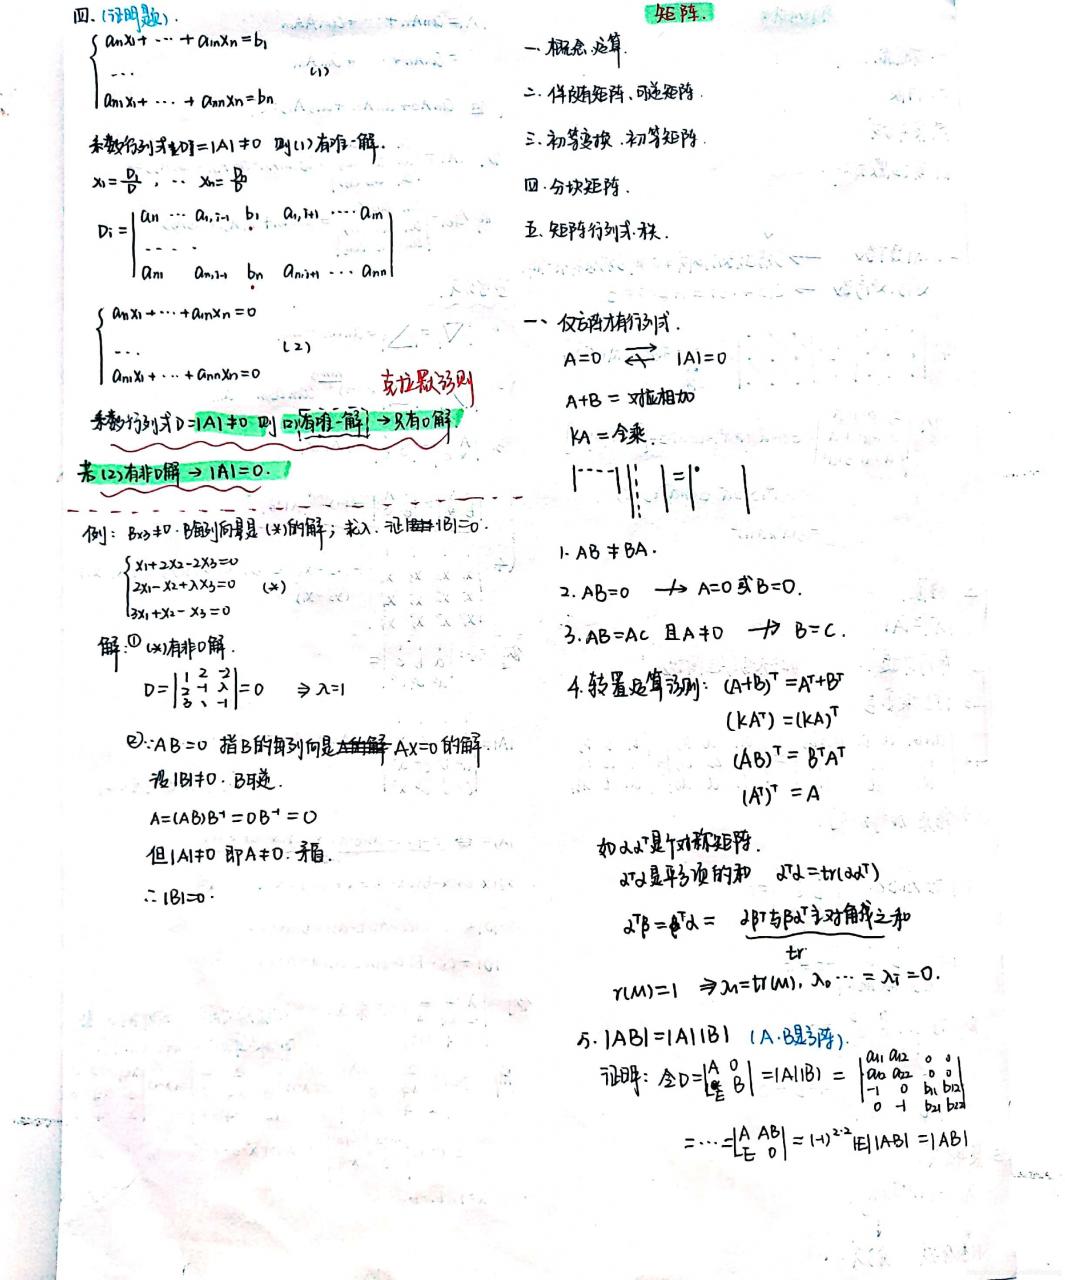 四.(证明题).
a₁₁x₁+ … + a₁ₙxₙ=b₁
… (1)
aₙ₁x₁+ … + aₙₙxₙ=bₙ
系数行列式D=|A|≠0 则(1)有唯一解.
x₁=D₁/D , … xₙ=Dₙ/D
Dᵢ= | a₁₁ … a₁,ᵢ₋₁ b₁ a₁,ᵢ₊₁ … a₁ₙ |
… .
aₙ₁ aₙ,ᵢ₋₁ bₙ aₙ,ᵢ₊₁ … aₙₙ
a₁₁x₁+…+a₁ₙxₙ=0
… (2)
aₙ₁x₁+…+aₙₙxₙ=0
克拉默法则
系数行列式D=|A|≠0 则(2)有唯一解→只有0解.
若(2)有非0解→|A|=0.
例: B₃ₓ₃≠0. B每列向量是(*)的解; 求λ. 证|B|=0.
x₁+2x₂-2x₃=0
2x₁-x₂+λx₃=0 (*)
3x₁+x₂-x₃=0
解:① (*)有非0解.
D= | 1 2 -2 |
| 2 -1 λ | =0 ⇒λ=1
| 3 1 -1 |
②∵AB=0 指B的每列向是 AX=0的解
设|B|≠0. B可逆.
A=(AB)B⁻¹=0B⁻¹=0
但|A|≠0 即A≠0. 矛盾.
∴|B|=0.
矩阵.
一.概念.运算.
二.伴随矩阵、可逆矩阵.
三.初等变换.初等矩阵.
四.分块矩阵.
五.矩阵行列式.秩.
一、仅方阵才有行列式.
A=0 ⇄ |A|=0
A+B = 对应相加
KA=全乘
1. AB≠BA.
2. AB=0 ↛ A=0或B=0.
3. AB=AC 且A≠0 ↛ B=C.
4.转置运算法则: (A+B)ᵀ=Aᵀ+Bᵀ
(KAᵀ)=(KA)ᵀ
(AB)ᵀ=BᵀAᵀ
(Aᵀ)ᵀ=A
如ααᵀ是个对称矩阵.
αᵀα是平方项的和 αᵀα=tr(ααᵀ)
αᵀβ=βᵀα= αβᵀ与βαᵀ主对角线之和
tr
r(M)=1 ⇒λ₁=tr(M), λ₀…=λᵢ=0.
5. |AB|=|A||B| (A.B是方阵).
证明: 令D= | A 0 | =|A||B| = | a₁₁ a₁₂ 0 0 |
| -E B | | a₂₁ a₂₂ 0 0 |
-1 0 b₁₁ b₁₂
0 -1 b₂₁ b₂₂
=…= | A AB | =(-1)²·² |E||AB|=|AB|
-E 0